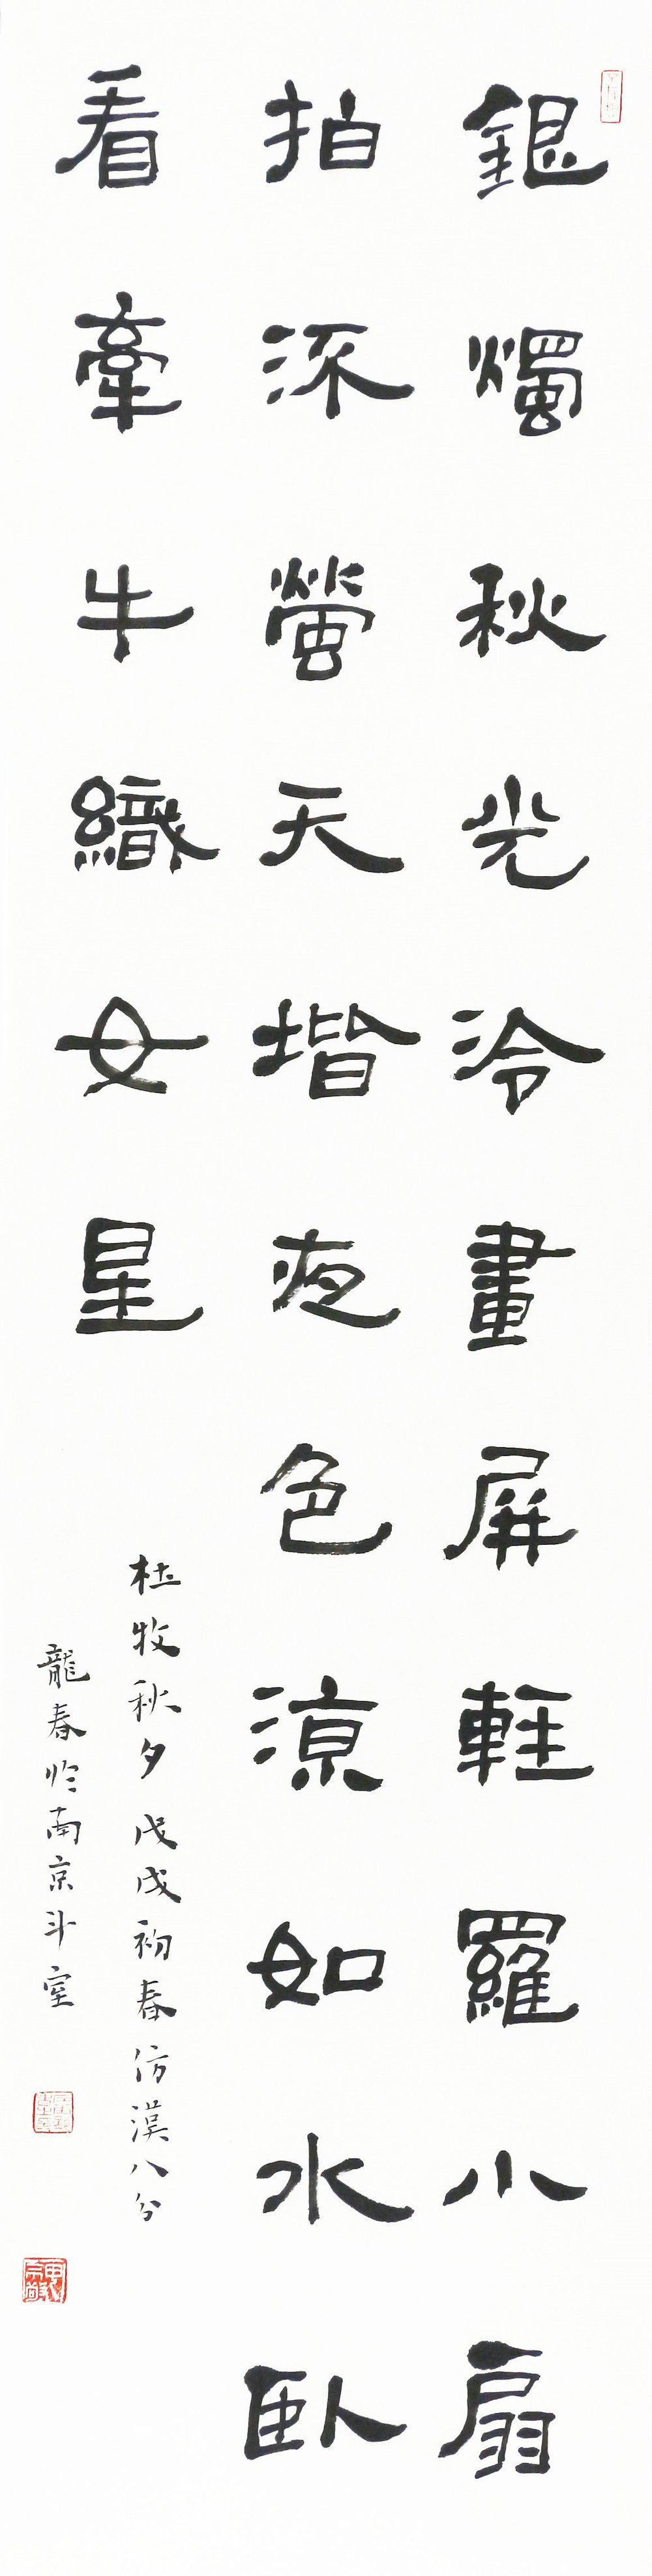 銀燭秋光泠畫屏輕羅小扇
拍流螢天堦夜色涼如水臥
看牽牛織女星
杜牧秋夕戊戌初春仿漢八分
龍春於南京斗室